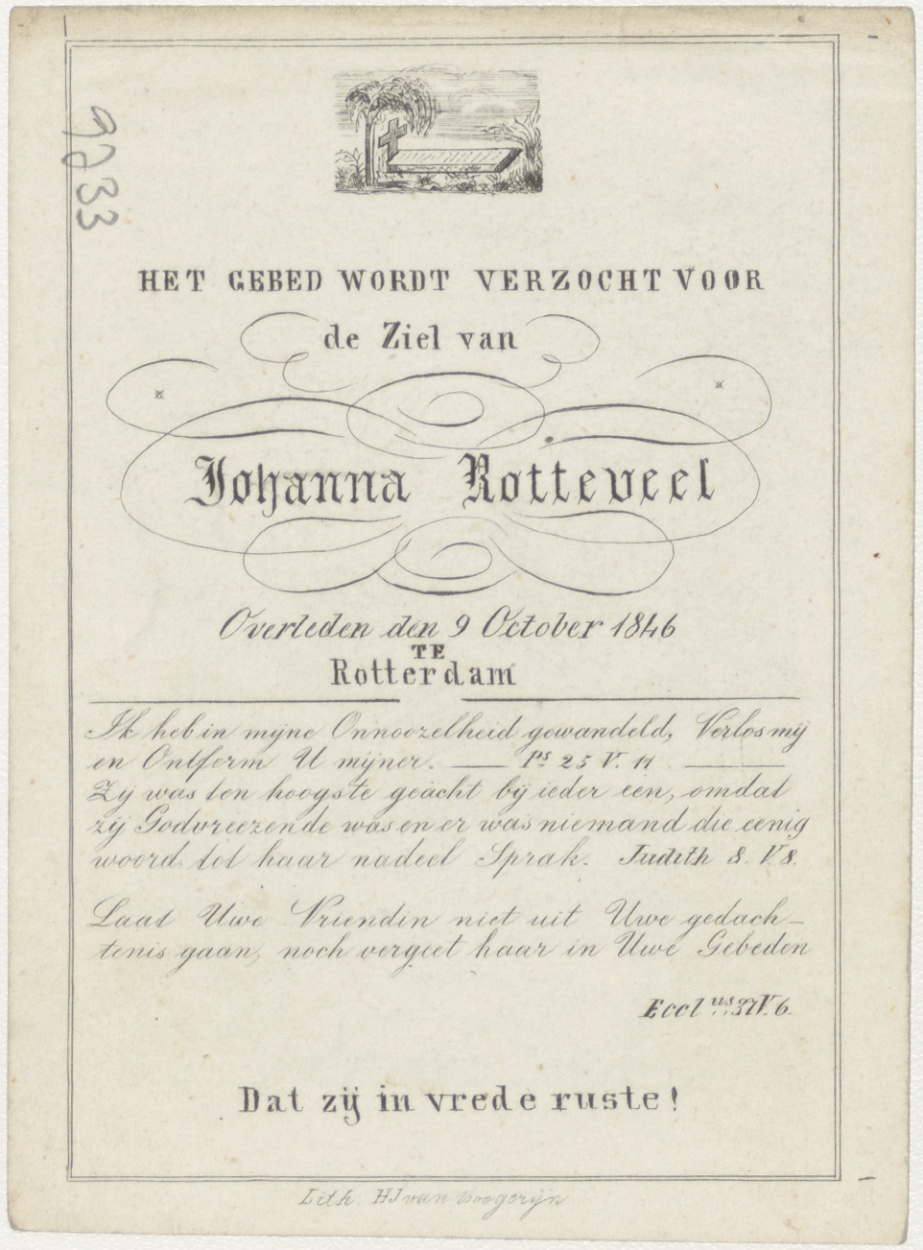 9833
HET GEBED WORDT VERZOCHT VOOR
de Ziel van
Johanna Rotteveel
Overleden den 9 October 1846
TE
Rotterdam
Ik heb in mijne Onnoozelheid gewandeld, Verlos mij
en Ontferm U mijner. — Ps 25 V. 11 —
Zij was ten hoogste geächt bij ieder een, omdat
zij Godvreezende was en er was niemand die eenig
woord tot haar nadeel Sprak. Judith 8. V. 8.
Laat Uwe Vriendin niet uit Uwe gedach-
tenis gaan, noch vergeet haar in Uwe Gebeden
Eccl us 37 V. 6.
Dat zij in vrede ruste!
Lith. HJ van